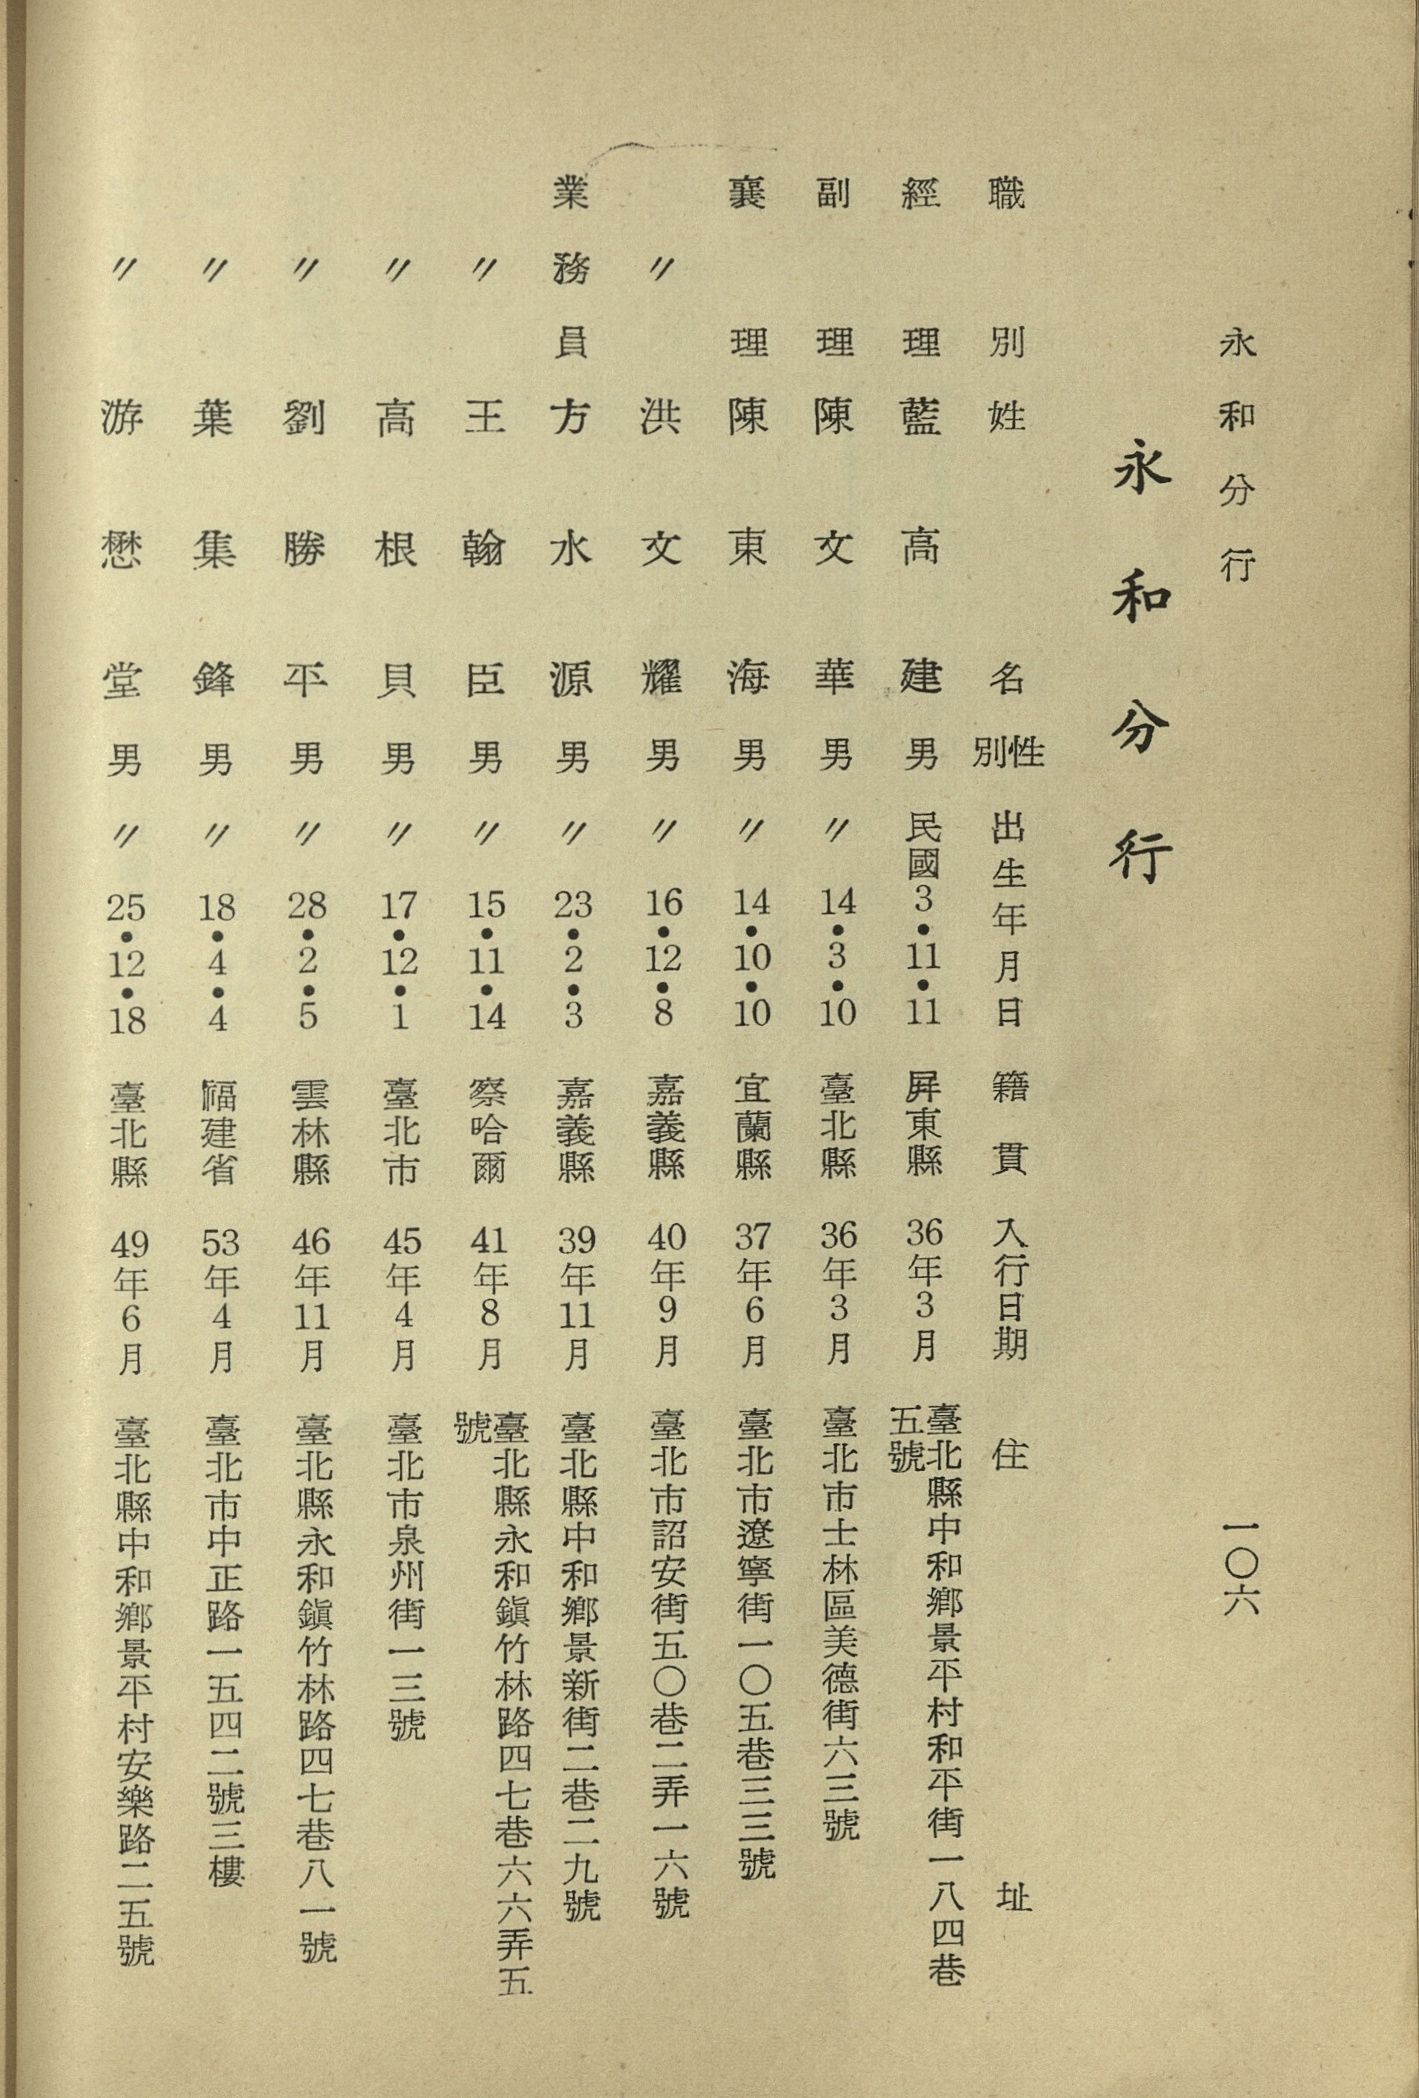 永和分行
一〇六
永和分行
職別 姓名 性別 出生年月日 籍貫 入行日期 住址
經理 藍高建 男 民國3•11•11 屏東縣 36年3月 臺北縣中和鄉景平村和平街一八四巷
五號
副理 陳文華 男 〃 14•3•10 臺北縣 36年3月 臺北市士林區美德街六三號
襄理 陳東海 男 〃 14•10•10 宜蘭縣 37年6月 臺北市遼寧街一〇五巷三三號
〃 洪文耀 男 〃 16•12•8 嘉義縣 40年9月 臺北市詔安街五〇巷二弄一六號
業務員 方水源 男 〃 23•2•3 嘉義縣 39年11月 臺北縣中和鄉景新街二巷二九號
〃 王翰臣 男 〃 15•11•14 察哈爾 41年8月 臺北縣永和鎮竹林路四七巷六六弄五
號
〃 高根貝 男 〃 17•12•1 臺北市 45年4月 臺北市泉州街一三號
〃 劉勝平 男 〃 28•2•5 雲林縣 46年11月 臺北縣永和鎮竹林路四七巷八一號
〃 葉集鋒 男 〃 18•4•4 福建省 53年4月 臺北市中正路一五四二號三樓
〃 游懋堂 男 〃 25•12•18 臺北縣 49年6月 臺北縣中和鄉景平村安樂路二五號